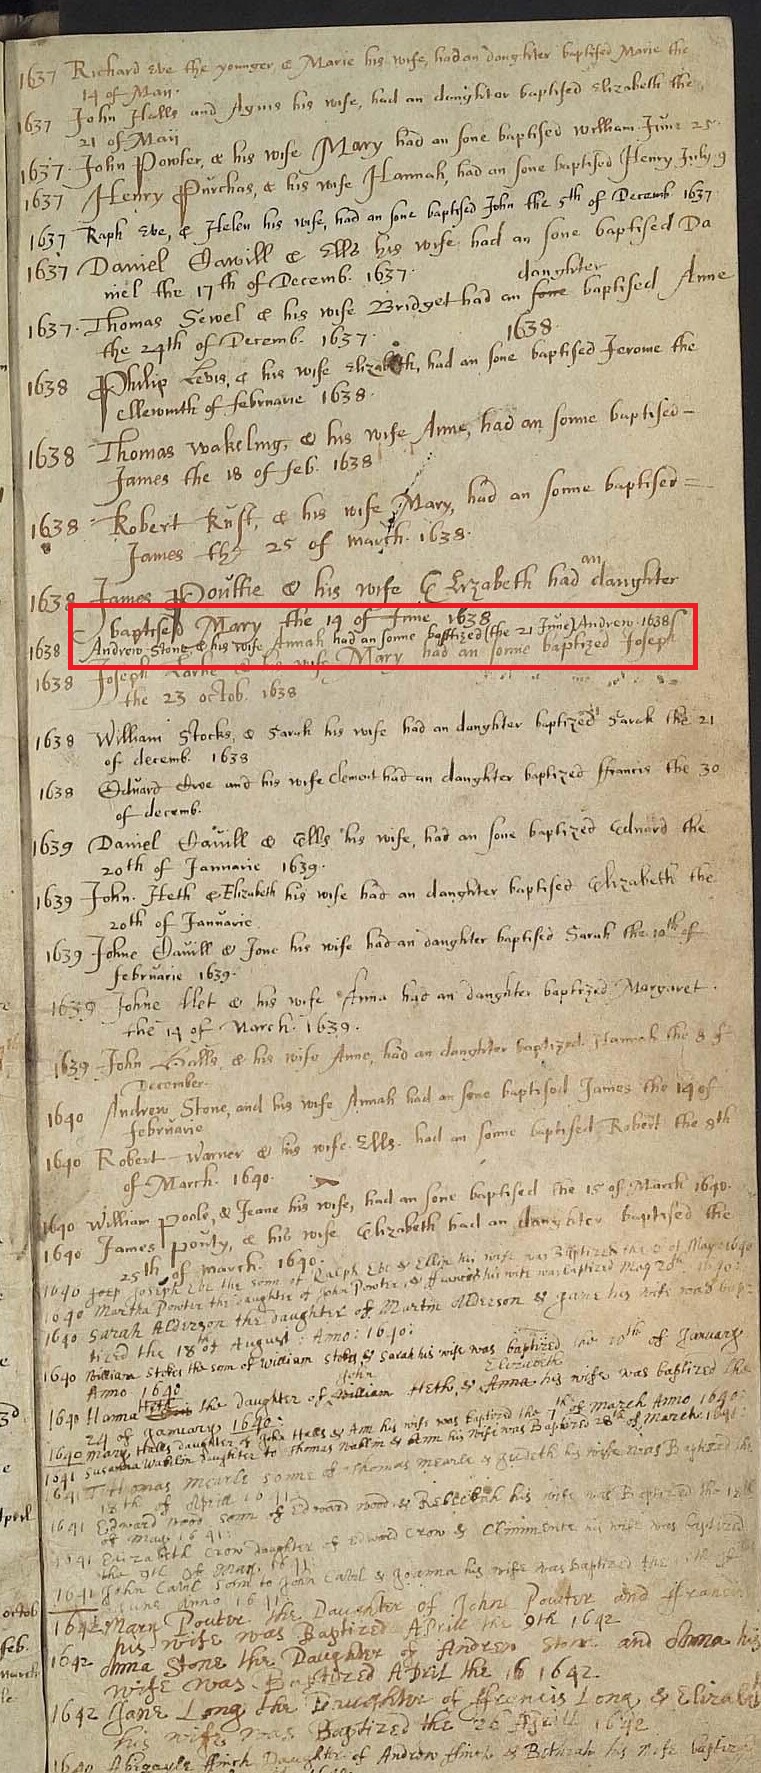 1637 Richard Eve the younger, & Marie his wife, had an daughter baptised Marie the
14 of Maij.
1637 John Halls and Agnis his wife, had an daughter baptised Elizabeth the
21 of Maij
1637. John Powter, & his wife Mary had an sone baptised William June 25.
1637 Henry Purchas, & his wife Hannah, had an sone baptised Henry July 9
1637 Raph Eve, & Helen his wife, had an sone baptised John the 5th of Decemb 1637.
1637 Daniel Cavill & Ells his wife had an sone baptised Da
niel the 17th of Decemb. 1637.
daughter
1637. Thomas Sewel & his wife Bridget had an sone baptised Anne
the 24th of Decemb. 1637.
1638.
1638 Philip Levis, & his wife Elizabeth, had an sone baptised Jerome the
ellewinth of februarie 1638.
1638 Thomas Wakeling, & his wife Anne, had an sonne baptised-
James the 18 of feb. 1638
1638 Robert Kust, & his wife Mary, had an sonne baptised =
James the 25 of march. 1638.
an
1638 James Pouttie & his wife Elizabeth had daughter
baptised Mary the 14 of June 1638
1638 Andrew Stone & his wife Annah had an sonne baptized (the 21 June) Andrew. 1638
1638 Joseph & his wife Mary had an sonne baptized Joseph
the 23 octob. 1638
1638 William Stocks, & Sarah his wife had an daughter baptized Sarah the 21
of decemb. 1638
1638 Eduard Crow and his wife Clement had an daughter baptized ffrancis the 30
of decemb.
1639 Daniel Cavill & Ells his wife, had an sone baptized Eduard the
20th of Januarie 1639.
1639 John. Heth & Elizabeth his wife had an daughter baptised Elizabeth the
20th of Januarie
1639 Johne Cavill & Jone his wife had an daughter baptised Sarah the 10th of
februarie 1639.
1639 Johne & his wife Anna had an daughter baptized Margaret.
the 14 of March. 1639.
1639 John Halls, & his wife Anne, had an daughter baptized Hannah the 8 of
December
1640 Andrew Stone, and his wife Annah had an sone baptised James the 14 of
februarie
1640 Robert Warner & his wife Ells. had an sonne baptised Robert the 8th
of March. 1640.
1640 William Poole, & Jeane his wife, had an sone baptised the 15 of March 1640.
1640 James Pouty, & his wife Elizabeth had an daughter baptised the
25th of march. 1640.
1640 Joseph Eve the sonn of Ralph Eve & Ellin his wife was Baptized the 5 of May 1640
1640 Martha Powter the daughter of John Powter, & ffrances his wife was baptized May 28th. 1640.
1640 Sarah Alderson the daughter of Martin Alderson & Jane his wife was bap-
tized the 18th of August: Anno: 1640:
1640 William Stokes the son of William Stokes & Sarah his wife was baptized the of January
Anno 1640
John Elizabeth
1640 Hanna Heth the daughter of William Heth, & Anna his wife was baptized the
24 of January 1640:
1640 Mary Halls daughter of John Halls & Ann his wife was baptized the 7th of march Anno 1640:
1641 Susanna daughter to Thomas & Ann his wife was Baptized 28th of March. 1640:
1641 Thomas Mearle sonne of Thomas Mearle & Judeth his wife was Baptized the
18th of Aprill 1641
1641 Edward Wood sonn of Edward Wood & Rebeckah his wife was Baptized the
of May 1641:
1641 Elizabeth Crow daughter of Edward Crow & Climmence his wife was baptized
the 9th of May, 1641:
1641 John Cavil sonn to John Cavil & Joanna his wife was baptized the of
June anno 1641
1642 Mary Powter the Daughter of John Powter and ffrances
his wife was Baptized Aprill the 9th 1642
1642 Anna Stone the Daughter of Andrew Stone and Anna his
wife was Baptized April the 16 1642
1642 Jane Long the Daughter of ffrancis Long & Elizabeth
his wife was Baptized the 26 Aprill 1642
1640 Abigayle ffinch Daughter of Andrew ffinch & Bethiah his wife baptized